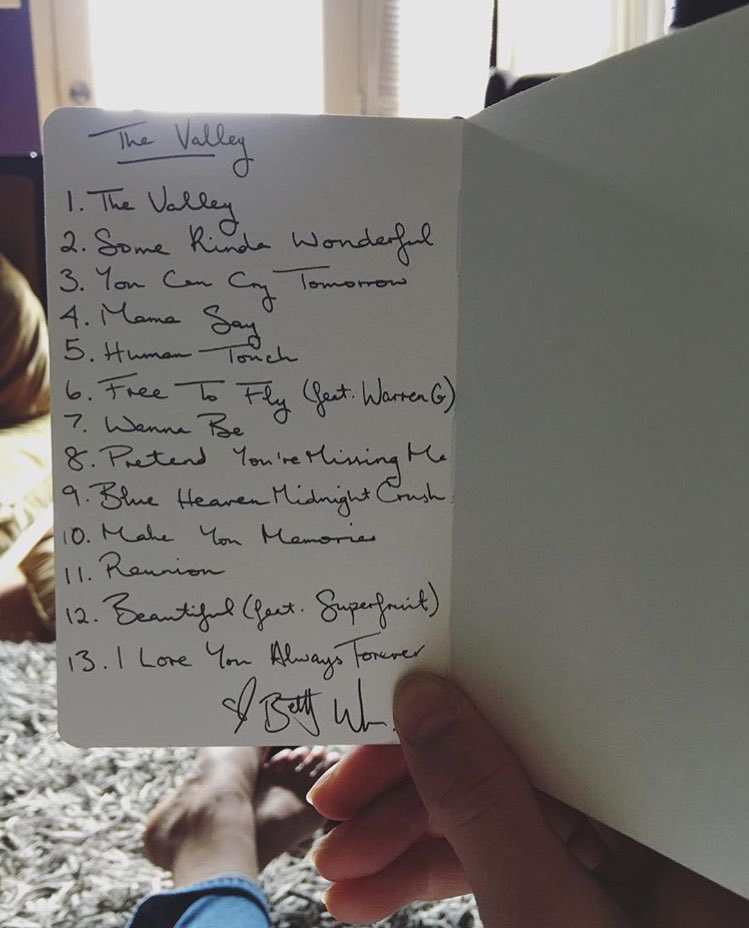 The Valley
1. The Valley
2. Some Kinda Wonderful
3. You Can Cry Tomorrow
4. Mama Say
5. Human Touch
6. Free To Fly (feat. Warren G)
7. Wanna Be
8. Pretend You're Missing Me
9. Blue Heaven Midnight Crush
10. Make You Memories
11. Reunion
12. Beautiful (feat. Superfruit)
13. I Love You Always Forever
♡ Betty Who